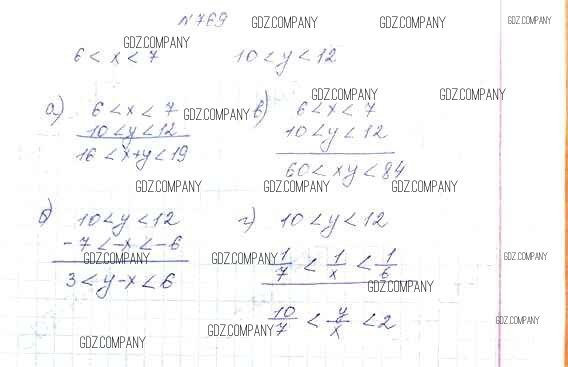 №769 GDZ.COMPANY GDZ.COMPANY GDZ.COMPANY
GDZ.COMPANY
6 < x < 7 10 < y < 12
GDZ.COMPANY GDZ.COMPANY
а) 6 < x < 7 GDZ.COMPANY в) 6 < x < 7
10 < y < 12 10 < y < 12
16 < x+y < 19 60 < xy < 84
GDZ.COMPANY GDZ.COMPANY GDZ.COMPANY
б) 10 < y < 12 г) 10 < y < 12
-7 < -x < -6 1/7 < 1/x < 1/6
GDZ.COMPANY GDZ.COMPANY GDZ.COMPANY
3 < y-x < 6 GDZ.COMPANY
10/7 < y/x < 2 GDZ.COMPANY
GDZ.COMPANY GDZ.COMPANY